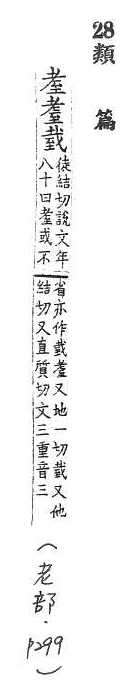 28類篇
耊耋𦒻徒結切說文年
八十曰耊或不
省亦作𦒻耋又地一切𦒻又他
結切又直質切文三重音三
(老部.p299)